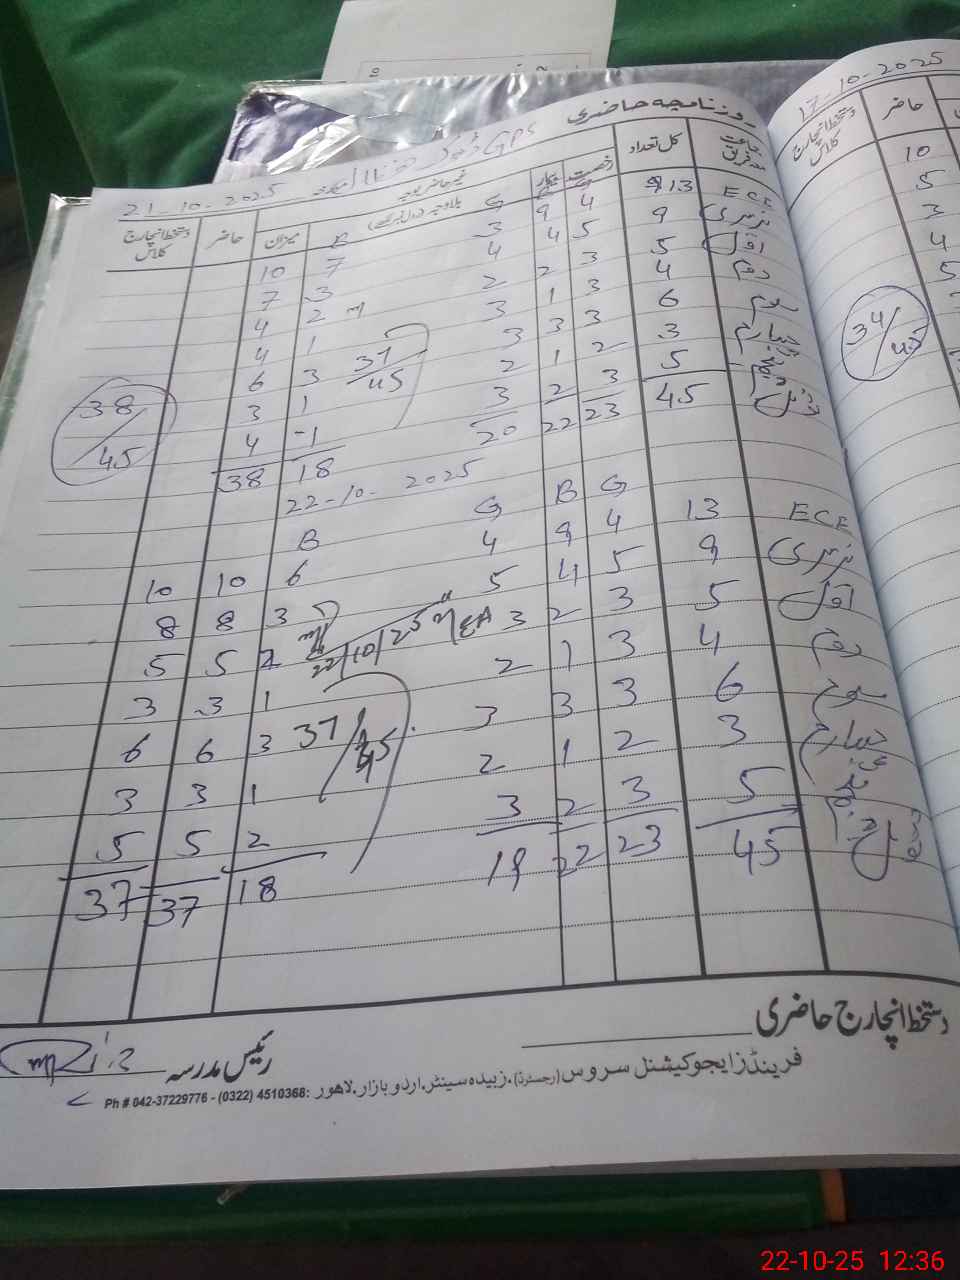 روزنامچہ حاضری
GPS
21-10-2025
جماعت معہ فریق کل تعداد رخصت بیمار غیر حاضر بوجہ بلاوجہ (رول نمبر لکھیے) میزان حاضر دستخط انچارج کلاس
G B
ECE 13 4 9 3 7 10
نرسری 9 5 4 4 3 7
اول 5 3 2 2 2 4
دوم 4 3 1 3 1 4
سوم 6 3 3 3 3 6
چہارم 3 2 1 2 1 3
پنجم 5 3 2 3 1 4
45 23 22 20 18 38
37/45
38/45
22-10-2025
G B G B
ECE 13 4 9 4 6 10 10
نرسری 9 5 4 5 3 8 8
اول 5 3 2 3 2 5 5
دوم 4 3 1 2 1 3 3
سوم 6 3 3 3 3 6 6
چہارم 3 2 1 2 1 3 3
پنجم 5 3 2 3 2 5 5
45 23 22 19 18 37 37
22/10/25 MEA
37/45
دستخط انچارج حاضری
رئیس مدرسہ
فرینڈز ایجوکیشنل سروس (رجسٹرڈ)، زبیدہ سینٹر، اردو بازار، لاہور
Ph # 042-37229776 - (0322) 4510368:
17-10-2025
حاضر دستخط انچارج کلاس
10
5
3
4
5
34/45
22-10-25 12:36